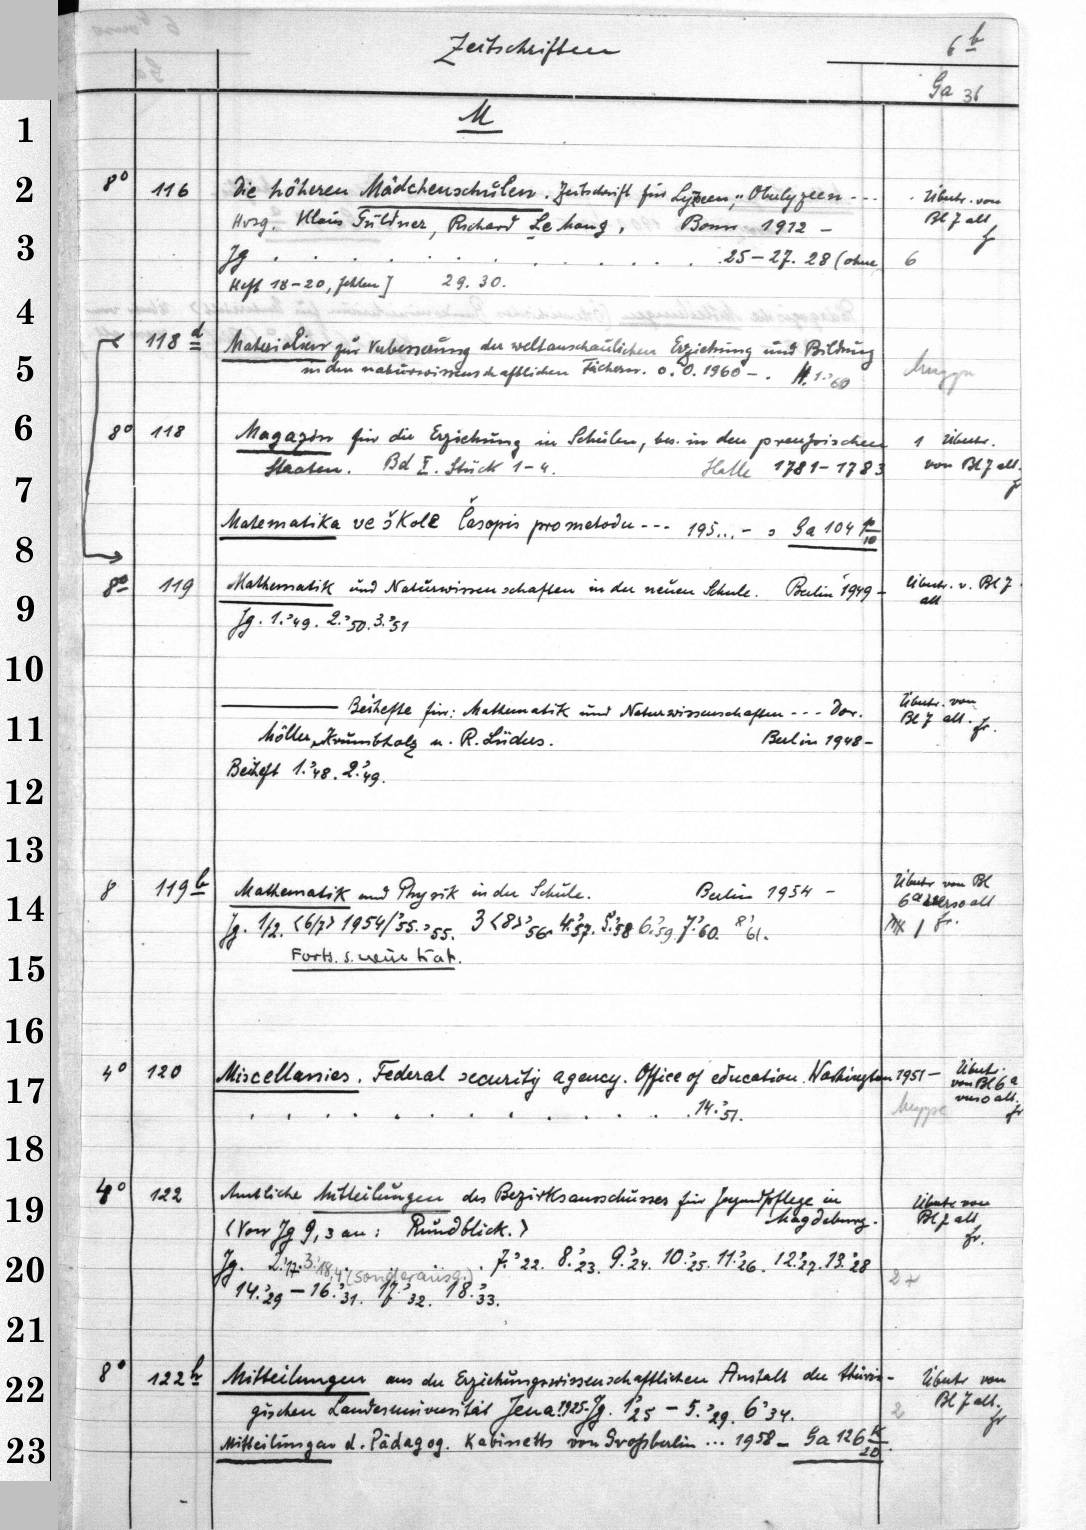 Zeitschriften
6 b
Ga 36
M
1
2
3
4
5
6
7
8
9
10
11
12
13
14
15
16
17
18
19
20
21
22
23
8° 116 Die höheren Mädchenschulen. Zeitschrift für Lyzeen, Oberlyzeen --- Übertr. von
Hrsg. Klaus Güldner, Richard Le Mang, Bonn 1912 – Bl 7 alt
Jg . . . . . . . . . . . . 25–27. 28 (ohne 6
Heft 18–20, fehlen] 29. 30.
118 d Materialien zur Verbesserung der weltanschaulichen Erziehung und Bildung
in den naturwissenschaftlichen Fächern. o.O. 1960 –. H. 1.'60 Mappe
8° 118 Magazin für die Erziehung in Schulen, bes. in den preußischen 1 Übertr.
Staaten. Bd I. Stück 1–4. Halle 1781–1783 von Bl 7 alt.
Matematika ve škole Časopis pro metodu --- 195... – s Ga 104 k/10
8° 119 Mathematik und Naturwissenschaften in der neuen Schule. Berlin 1949 – Übertr. v. Bl 7
Jg. 1.'49. 2.'50. 3.'51 alt
——— Beihefte für: Mathematik und Naturwissenschaften --- Dor. Übertr. von
Möller, Krumbholz u. R. Lüders. Berlin 1948 – Bl 7 alt. fr.
Beiheft 1.'48. 2.'49.
8 119 b Mathematik und Physik in der Schule. Berlin 1954 – Übertr von Bl
6a verso alt
Jg. 1/2. <6/7> 1954/'55.'55. 3 <8>'56. 4.'57. 5.'58 6.'59. 7.'60. 8'61. fr.
Forts. s. neue Kat.
4° 120 Miscellanies. Federal security agency. Office of education. Washington 1951 – Übertr.
von Bl 6 a
verso alt.
. . . . . . . . . 14.'51. Mappe fr
4° 122 Amtliche Mitteilungen des Bezirksausschusses für Jugendpflege in Übertr von
Magdeburg. Bl 7 alt
<Von Jg 9,3 an: Rundblick.> fr.
Jg. 2.'17. 3.'18,4 (Sonderausg.) . 7.'22. 8.'23. 9.'24. 10.'25. 11.'26. 12.'27. 13.'28
14.'29 – 16.'31. 17.'32. 18.'33.
8° 122 h Mitteilungen aus der Erziehungswissenschaftlichen Anstalt der thürin- Übertr von
gischen Landesuniversität Jena. 1925– Jg. 1'25 – 5.'29. 6'34. 2 Bl 7 alt. fr
Mitteilungen d. Pädagog. Kabinetts von Großberlin ... 1958 – Ga 126 k/20